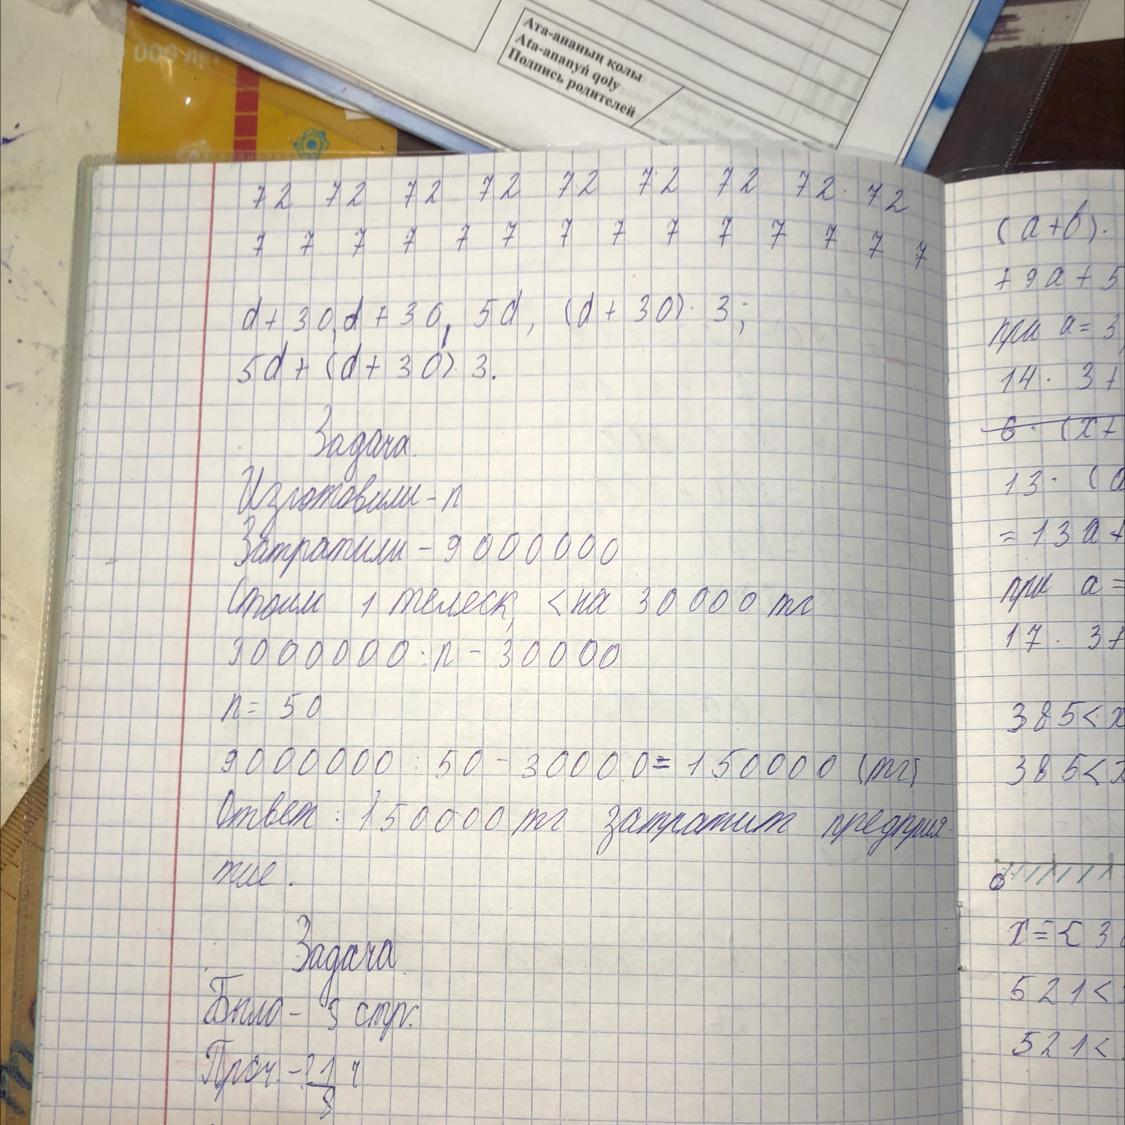 Ата-ананың қолы
Ata-ananyń qoly
Подпись родителей
72 72 72 72 72 72 72 72 72
7 7 7 7 7 7 7 7 7 7 7 7 7 7
d+30, d+30, 5d, (d+30)·3;
5d+(d+30)·3.
Задача.
Изготовили - n
Затратили - 9000000
Стоим 1 телеск, < на 30000 тг
9000000:n - 30000
n = 50
9000000 : 50 - 30000 = 150000 (тг)
Ответ: 150000 тг затратит предприя-
тие.
Задача
Было - 3 стр.
Проч. - ? 1/8 ч
(a+b)·
+9a+5
при a=3,
14· 3+
6·(x+
13·(a
=13a+
при a=
17· 3+
385<x
385<x
0
x={3
521<
521<